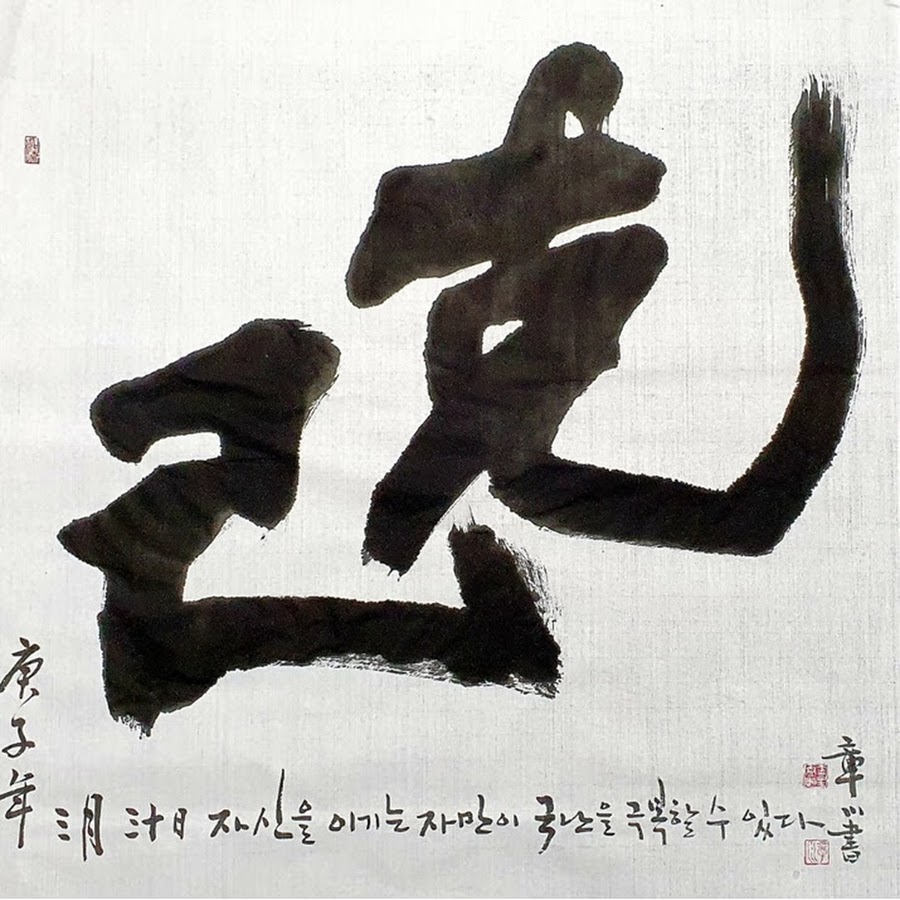 克己
庚子年
三月 三十日 자신을 이기는 자만이 국난을 극복할 수 있다
章 書